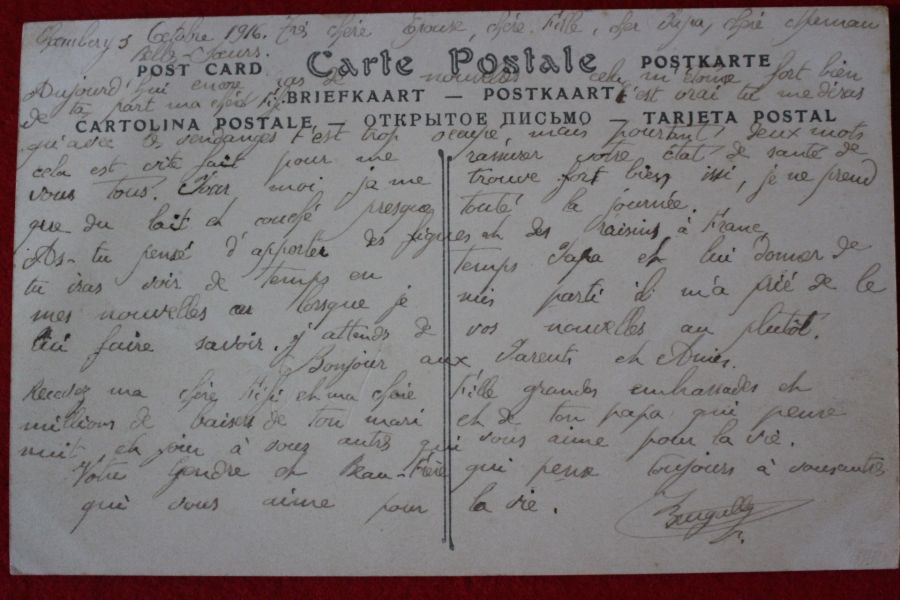 Chambery 5 Octobre 1916. Très chère Epouse, chère Fille, cher Papa, chère Maman
Belle-Sœurs.
POST CARD Carte Postale POSTKARTE
Aujourd'hui encore pas de nouvelles cela m'étonne fort bien
BRIEFKAART — POSTKAART
de ta part ma chère Fifi. C'est vrai tu me diras
CARTOLINA POSTALE — ОТКРЫТОЕ ПИСЬМО — TARJETA POSTAL
qu'avec les vendanges t'est trop ocupée, mais pourtant deux mots
cela est vite fait pour me rassurer votre état de santé de
vous tous. Pour moi ja me trouve fort bien ici, je ne prend
que du lait et couché presque touté la journée.
As-tu pensé d'apporter des figues et des raisins à Franc
tu iras voir de temps en temps Papa et lui donner de
mes nouvelles car lorsque je suis parti il m'a prié de le
lui faire savoir. J'attends de vos nouvelles au plutôt.
Bonjour aux Parents et Amies.
Recevez ma chère Fifi et ma chère Fille grandes embrassades et
millions de baises de ton mari et de ton papa qui pense
nuit et jour à vous autres qui vous aime pour la vie.
Votre Gendre et Beau-Frère qui pense toujours à vousautres
qui vous aime pour la vie.